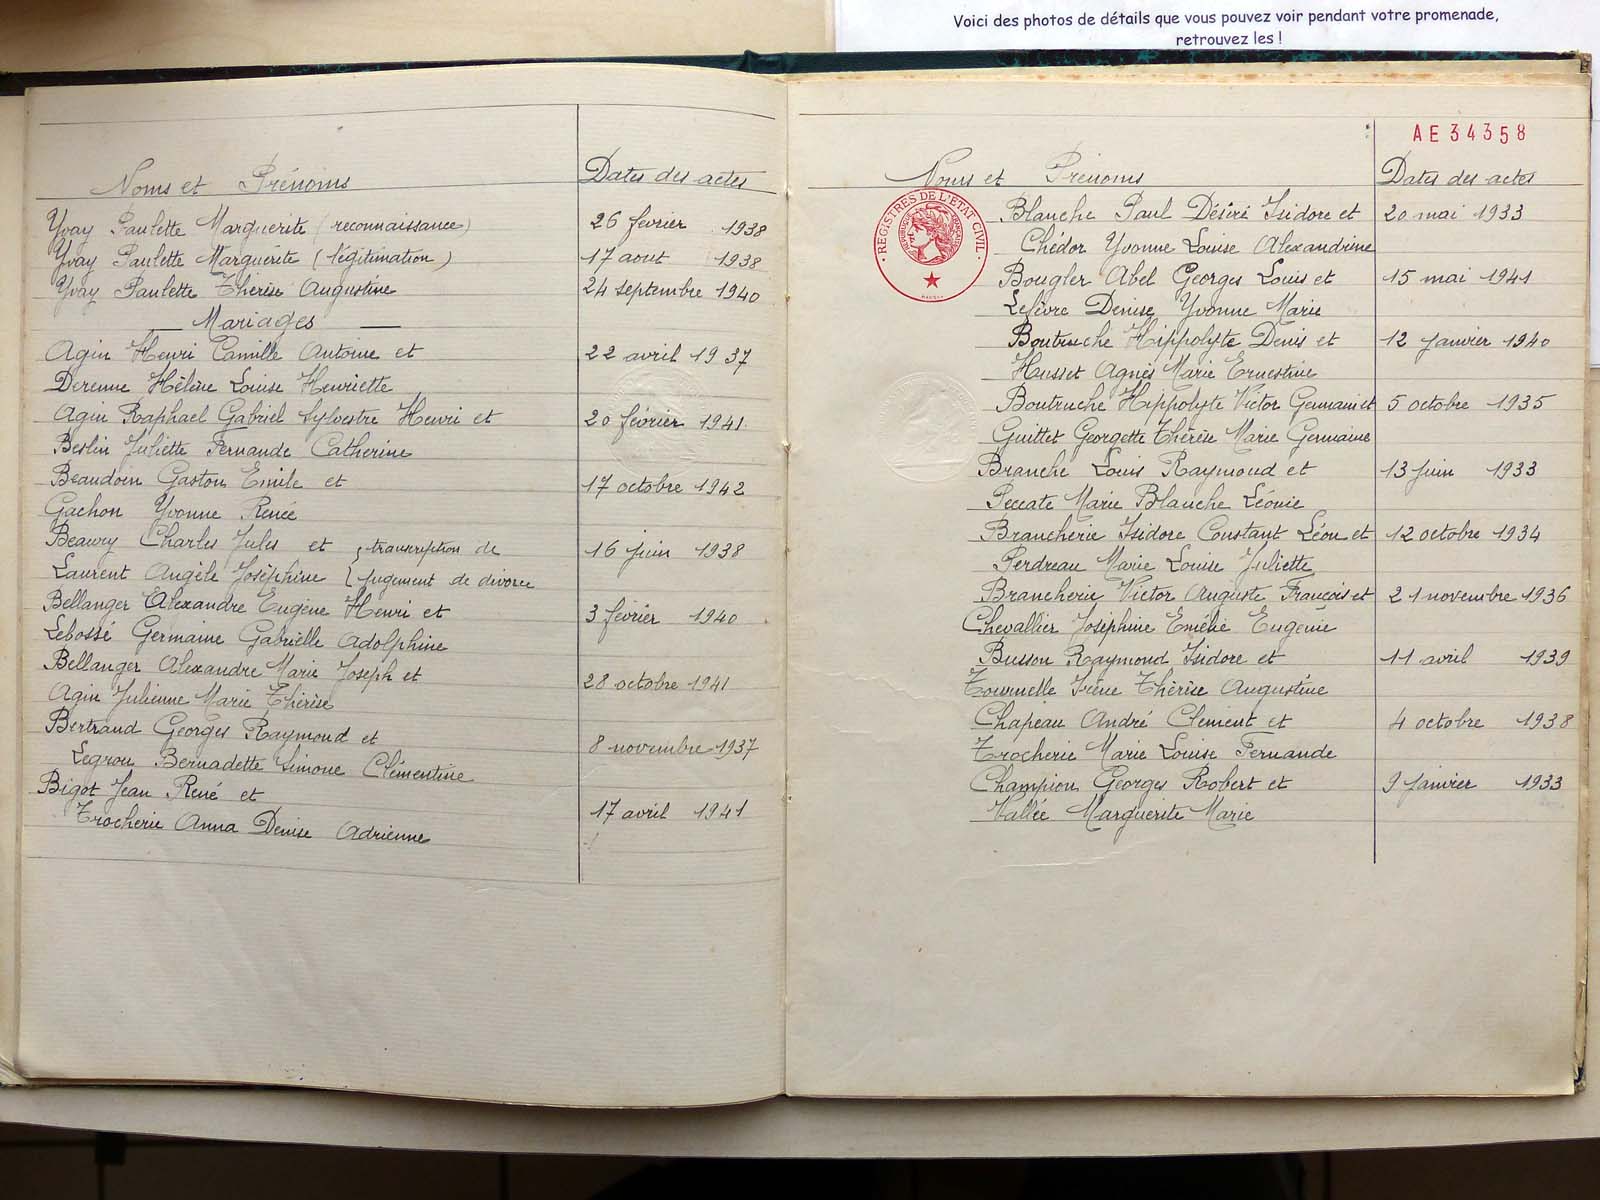 Voici des photos de détails que vous pouvez voir pendant votre promenade,
retrouvez les !
Noms et Prénoms Dates des actes
Yvay Paulette Marguerite (reconnaissance) 26 février 1938
Yvay Paulette Marguerite (légitimation) 17 aout 1938
Yvay Paulette Thérèse Augustine 24 septembre 1940
Mariages
Agin Henri Camille Antoine et 22 avril 1937
Derenne Hélène Louise Henriette
Agin Raphael Gabriel Sylvestre Henri et 20 février 1941
Beslin Juliette Fernande Catherine
Beaudoin Gaston Emile et 17 octobre 1942
Gachon Yvonne Renée
Beaury Charles Jules et } transcription de 16 juin 1938
Laurent Angèle Joséphine } jugement de divorce
Bellanger Alexandre Eugène Henri et 3 février 1940
Lebossé Germaine Gabrielle Adolphine
Bellanger Alexandre Marie Joseph et 28 octobre 1941
Agin Julienne Marie Thérèse
Bertrand Georges Raymond et 8 novembre 1937
Legrou Bernadette Simone Clémentine
Bigot Jean René et 17 avril 1941
Trocherie Anna Denise Adrienne
AE34358
Noms et Prénoms Dates des actes
REGISTRES DE L'ÉTAT CIVIL
Blanche Paul Désiré Isidore et 20 mai 1933
Chédor Yvonne Louise Alexandrine
Bougler Abel Georges Louis et 15 mai 1941
Lefèvre Denise Yvonne Marie
Boutruche Hippolyte Denis et 12 janvier 1940
Husset Agnès Marie Ernestine
Boutruche Hippolyte Victor Germain et 5 octobre 1935
Guittet Georgette Thérèse Marie Germaine
Branche Louis Raymond et 13 juin 1933
Peccate Marie Blanche Léonie
Brancherie Isidore Constant Léon et 12 octobre 1934
Perdreau Marie Louise Juliette
Brancherie Victor Auguste François et 21 novembre 1936
Chevallier Joséphine Emélie Eugénie
Busson Raymond Isidore et 11 avril 1939
Tournelle Irène Thérèse Augustine
Chapeau André Clément et 4 octobre 1938
Trocherie Marie Louise Fernande
Champion Georges Robert et 9 janvier 1933
Vallée Marguerite Marie